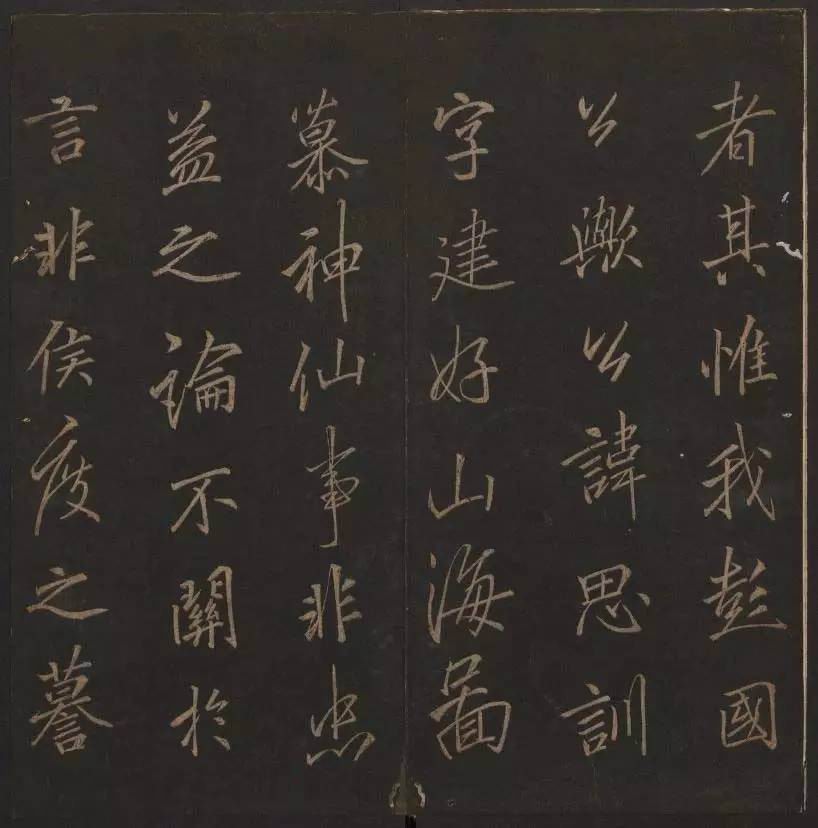 者其惟我彭國
公歟公諱思訓
字建好山海圖
慕神仙事非忠
益之論不關於
言非侯度之謩